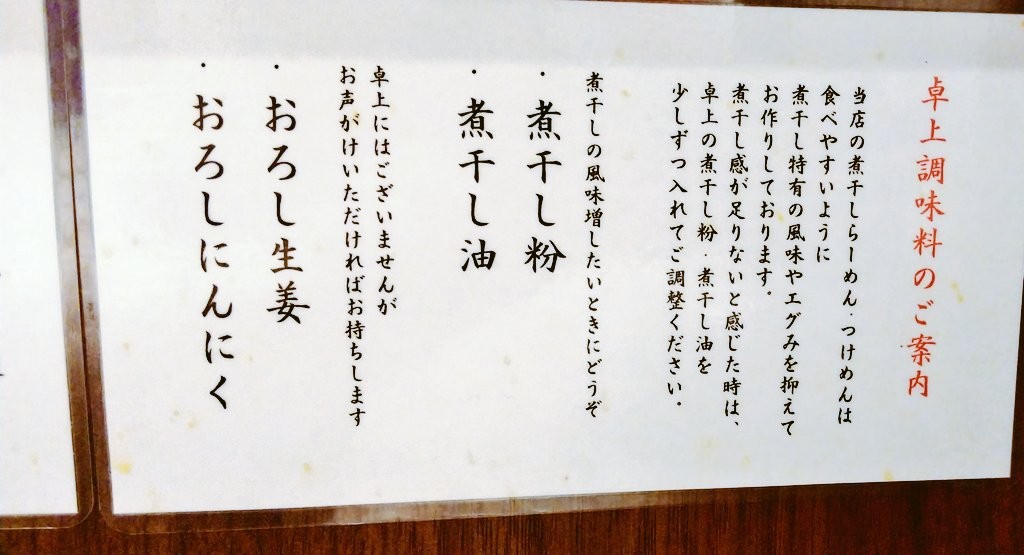 卓上調味料のご案内
当店の煮干しらーめん・つけめんは
食べやすいように
煮干し特有の風味やエグみを抑えて
お作りしております。
煮干し感が足りないと感じた時は、
卓上の煮干し粉・煮干し油を
少しずつ入れてご調整ください。
煮干しの風味増したいときにどうぞ
・煮干し粉
・煮干し油
卓上にはございませんが
お声がけいただければお持ちします
・おろし生姜
・おろしにんにく